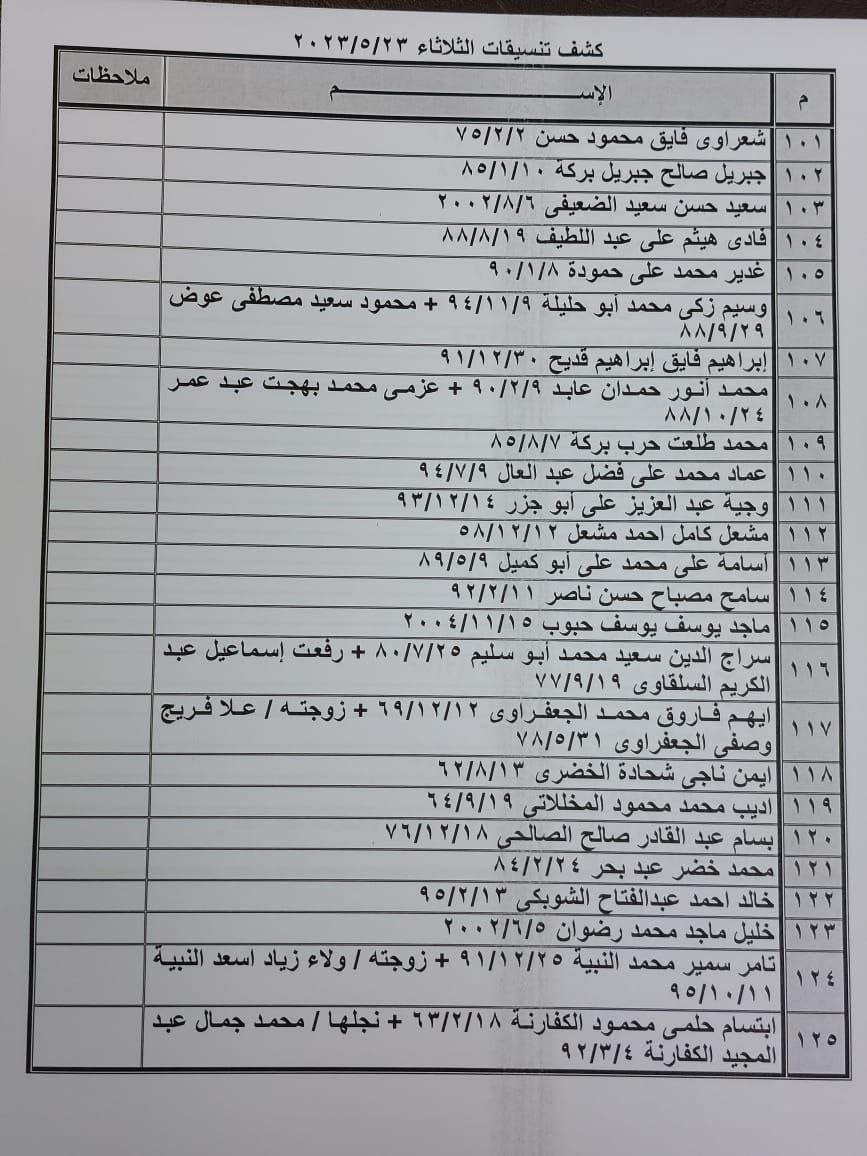 كشف تنسيقات الثلاثاء ٢٠٢٣/٥/٢٣
م الإســـم ملاحظات
١٠١ شعراوى فايق محمود حسن ٧٥/٢/٢
١٠٢ جبريل صالح جبريل بركة ٨٥/١/١٠
١٠٣ سعيد حسن سعيد الضعيفى ٢٠٠٢/٨/٦
١٠٤ فادى هيثم على عبد اللطيف ٨٨/٨/١٩
١٠٥ غدير محمد على حمودة ٩٠/١/٨
١٠٦ وسيم زكى محمد أبو حليلة ٩٤/١١/٩ + محمود سعيد مصطفى عوض
٨٨/٩/٢٩
١٠٧ إبراهيم فايق إبراهيم قديح ٩١/١٢/٣٠
١٠٨ محمد أنور حمدان عابد ٩٠/٢/٩ + عزمى محمد بهجت عبد عمر
٨٨/١٠/٢٤
١٠٩ محمد طلعت حرب بركة ٨٥/٨/٧
١١٠ عماد محمد على فضل عبد العال ٩٤/٧/٩
١١١ وجية عبد العزيز على أبو جزر ٩٣/١٢/١٤
١١٢ مشعل كامل احمد مشعل ٥٨/١٢/١٢
١١٣ أسامة على محمد على أبو كميل ٨٩/٥/٩
١١٤ سامح مصباح حسن ناصر ٩٢/٢/١١
١١٥ ماجد يوسف يوسف حبوب ٢٠٠٤/١١/١٥
١١٦ سراج الدين سعيد محمد أبو سليم ٨٠/٧/٢٥ + رفعت إسماعيل عبد
الكريم السلقاوى ٧٧/٩/١٩
١١٧ ايهم فاروق محمد الجعفراوى ٦٩/١٢/١٢ + زوجته / علا فريج
وصفى الجعفراوى ٧٨/٥/٣١
١١٨ ايمن ناجى شحادة الخضرى ٦٢/٨/١٣
١١٩ اديب محمد محمود المخللاتى ٦٤/٩/١٩
١٢٠ بسام عبد القادر صالح الصالحى ٧٦/١٢/١٨
١٢١ محمد خضر عبد بحر ٨٤/٢/٢٤
١٢٢ خالد احمد عبدالفتاح الشوبكى ٩٥/٢/١٣
١٢٣ خليل ماجد محمد رضوان ٢٠٠٢/٦/٥
١٢٤ تامر سمير محمد النبية ٩١/١٢/٢٥ + زوجته / ولاء زياد اسعد النبية
٩٥/١٠/١١
١٢٥ ابتسام حلمى محمود الكفارنة ٦٣/٢/١٨ + نجلها / محمد جمال عبد
المجيد الكفارنة ٩٢/٣/٤